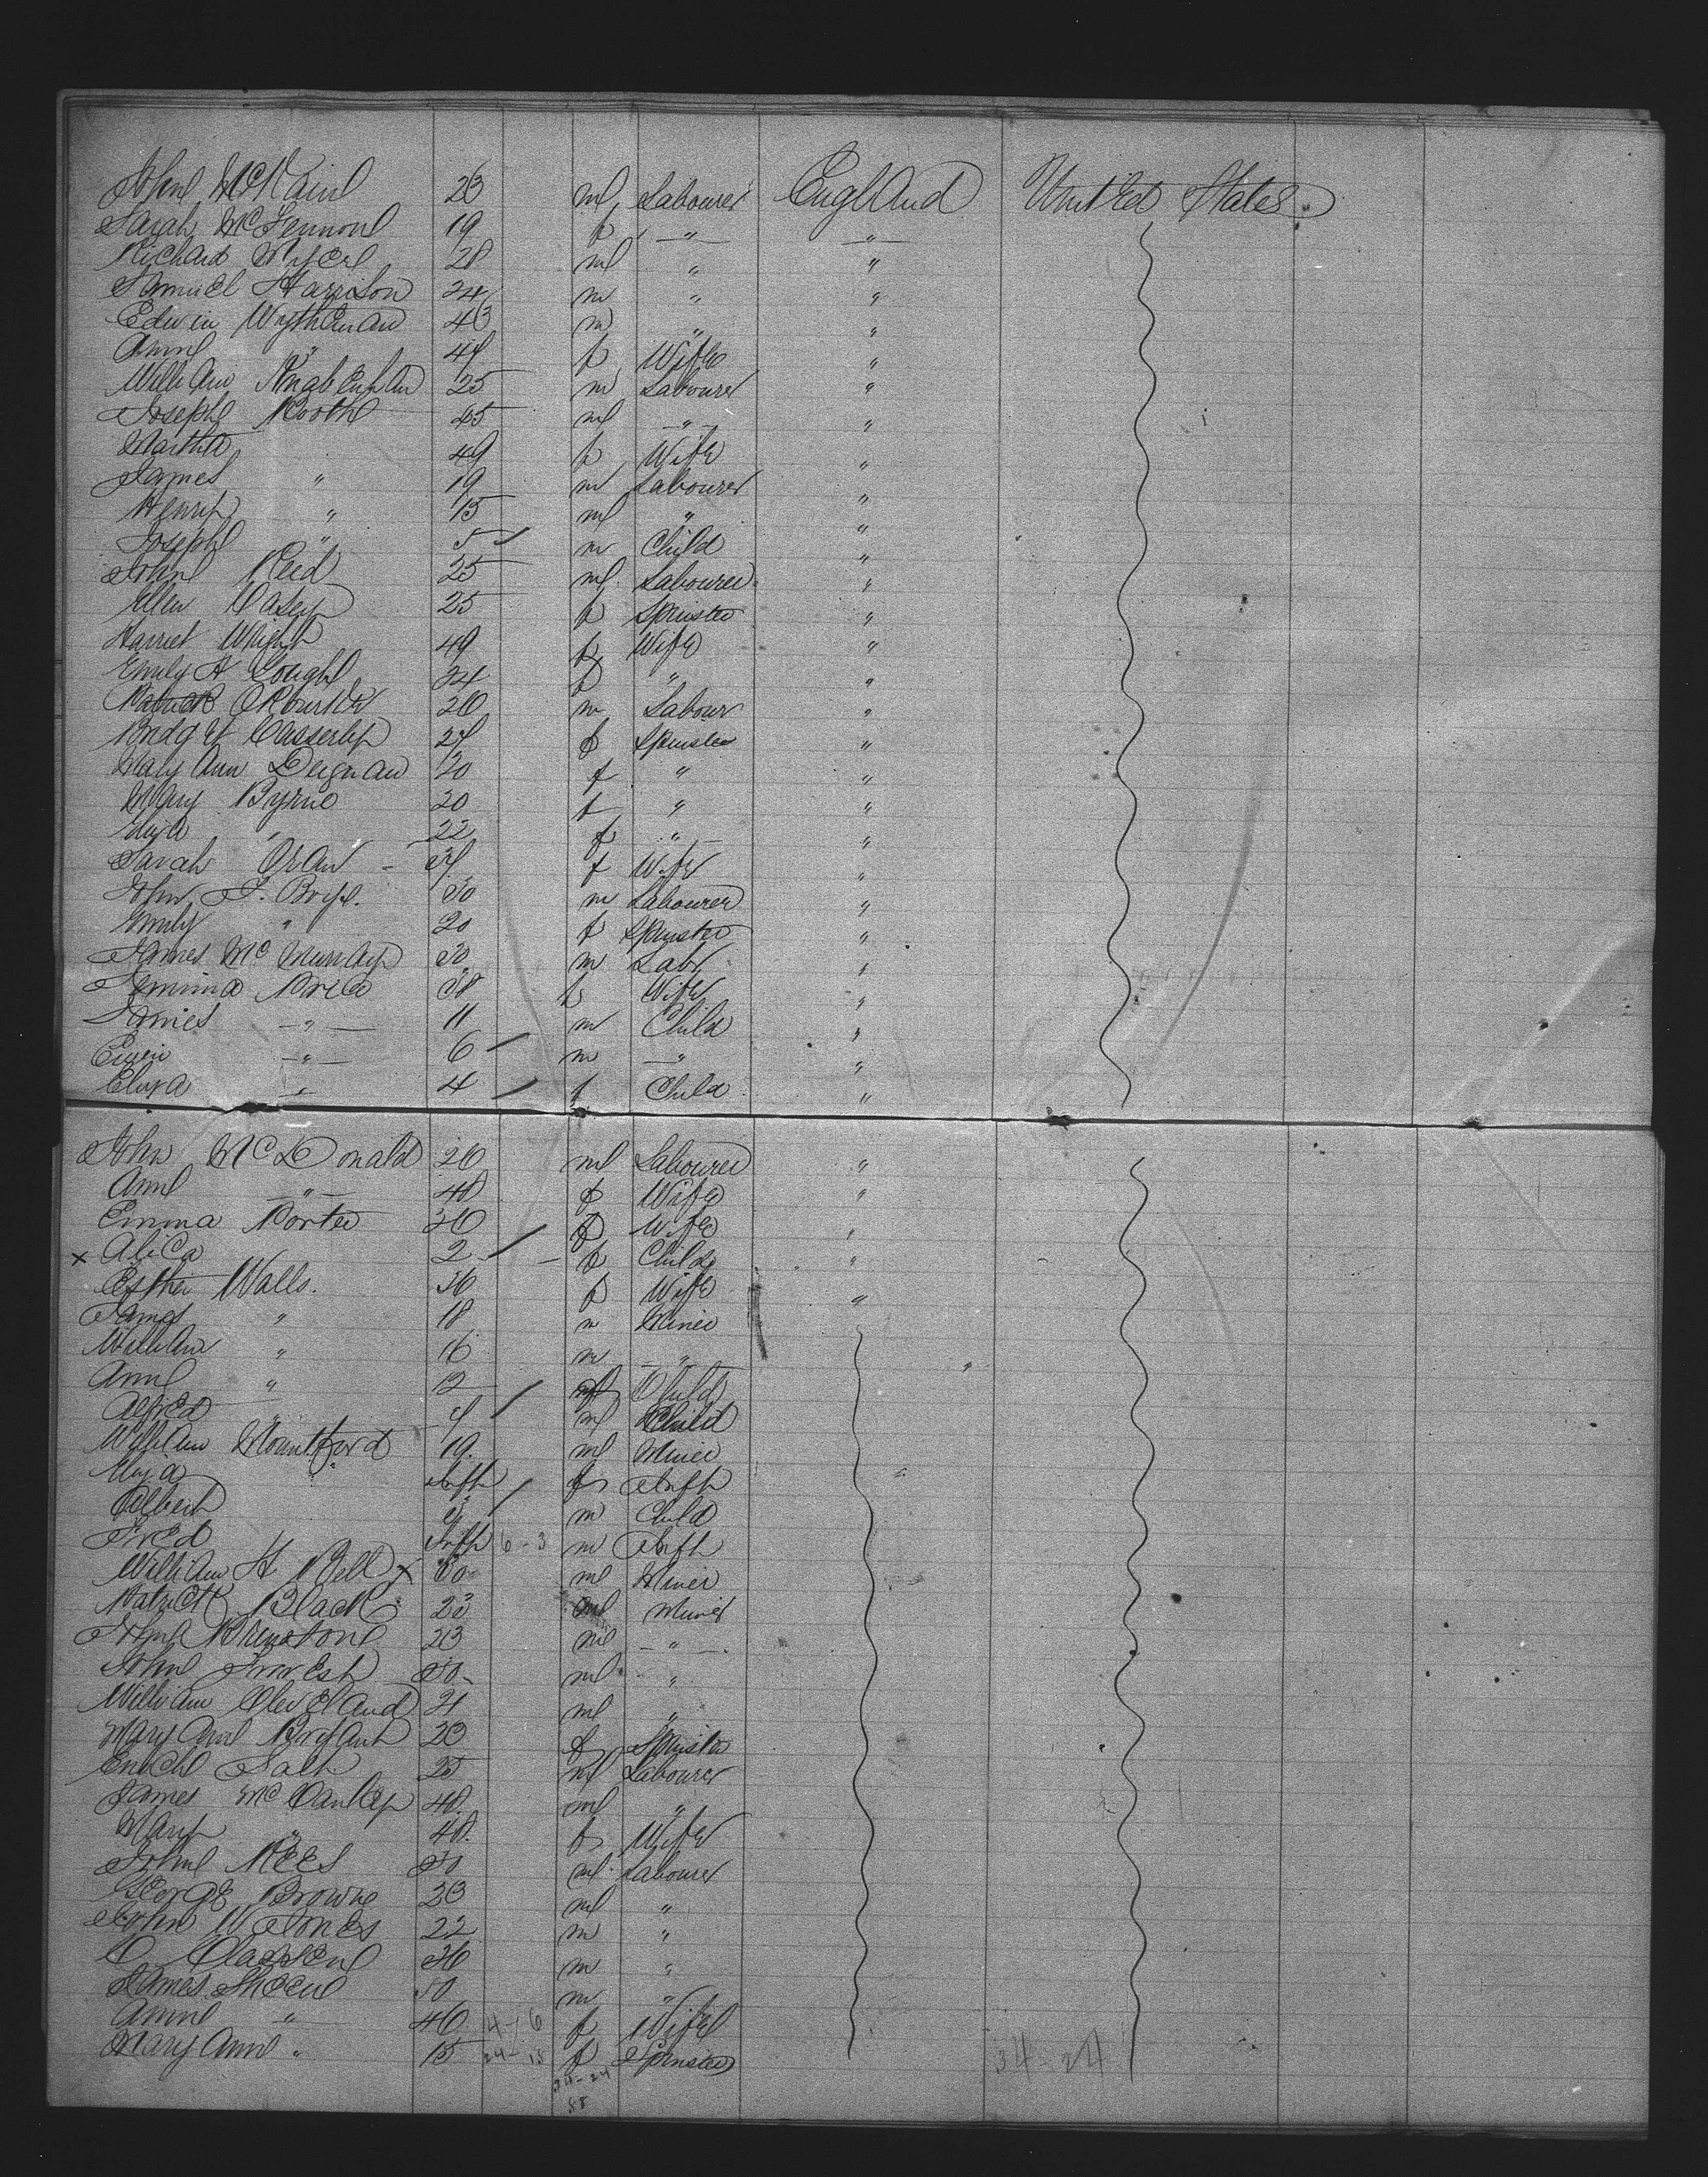 John McKain 23 m Labourer England United States
Sarah McLennon 19 f — " — — " —
Richard Myers 28 m " "
Samuel Harrison 24 m " "
Edwin 43 m " "
Ann " 44 f Wife "
William 25 m Labourer "
Joseph Booth 45 m — " — "
Martha 49 f Wife "
James " 19 m Labourer "
Henry " 15 m " "
Joseph " 5 m Child "
John Reid 25 m Labourer "
Ellen Casey 25 f Spinster "
Harriet Wright 49 f Wife "
Emily A Gough 34 f " "
Patrick ORourke 20 m Labour "
Bridget Casserley 24 f Spinster "
Mary Ann Deignan 20 f " "
Mary Byrne 20 f " "
Eliza " 22 f " "
Sarah f Wife "
John m Labourer "
Emily " 20 f Spinster "
James McMurray 30 m Labr "
Jemima Price f Wife "
James — " — 11 m Child "
Edwin — " — 6 m — " "
Eliza " 4 f Child "
John McDonald 26 m Labourer "
Ann — " — 40 f Wife "
Emma Porter 30 f Wife "
x Alica 2 f Child "
Esther Walls. 36 f Wife "
James " 18 m Miner
William " 16 m — " —
Ann " 12 f Child
Alfred " 4 m Child
William Mountford 19 m Miner
Eliza " Infh f Infh
Albert m Child
Fred Infh 6-3 m Infh
William H Bell x m Miner
Patrick Black 23 m Miner
John 23 m — " —
John Forrest 30 m "
William Cleveland 21 m "
Mary Ann Bryant 20 f Spinster
Enoch Salt 25 m Labourer
James McCauley 40 m "
Mary " 40 f Wife
John Rees 30 m Labourer
George Browne 23 m "
John W Jones 22 m "
C Clausen 36 m "
James Sheen 50 m "
Ann — " — 46 4-6 f Wife
Mary Ann " 15 24-18 f Spinster 34-24
34-24